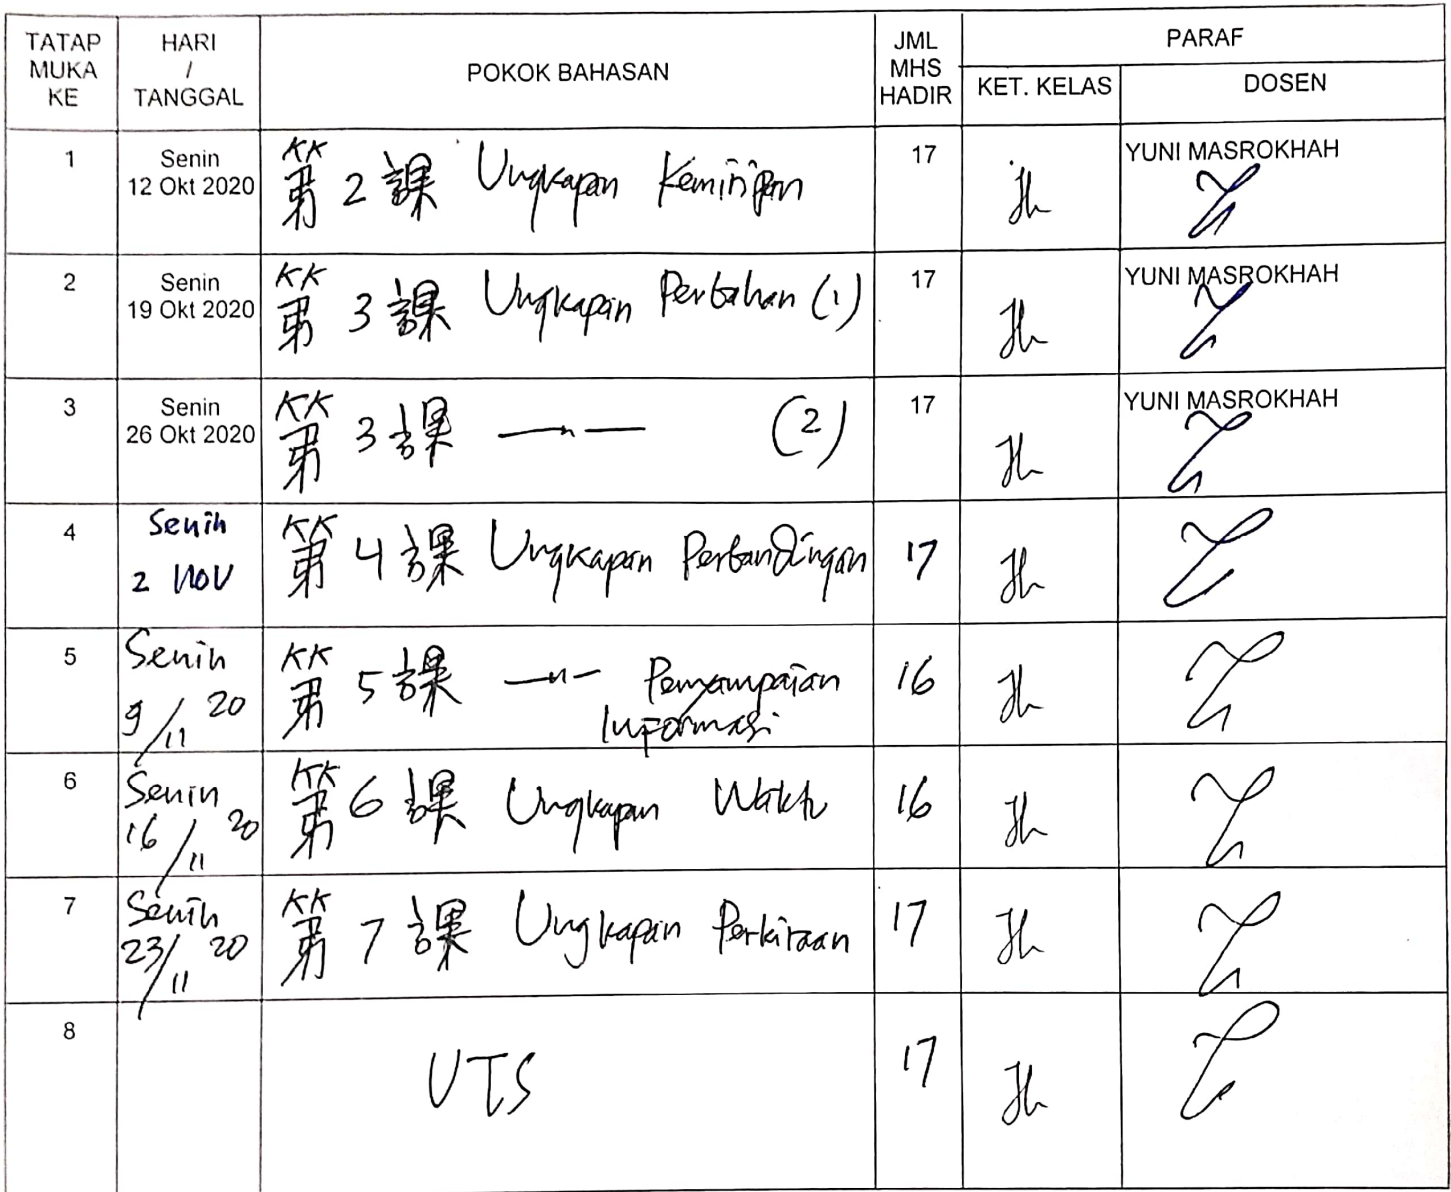 TATAP MUKA KE HARI / TANGGAL POKOK BAHASAN JML MHS HADIR PARAF
KET. KELAS DOSEN
1 Senin 12 Okt 2020 第2課 Ungkapan Kemiripan 17 YUNI MASROKHAH
2 Senin 19 Okt 2020 第3課 Ungkapan (1) 17 YUNI MASROKHAH
3 Senin 26 Okt 2020 第3課 —〃— (2) 17 YUNI MASROKHAH
4 Senin 2 NOV 第4課 Ungkapan Perbandingan 17
5 Senin 9/11 20 第5課 —〃— Penyampaian Informasi 16
6 Senin 16/11 20 第6課 Ungkapan Waktu 16
7 Senin 23/11 20 第7課 Ungkapan Perkiraan 17
8 UTS 17